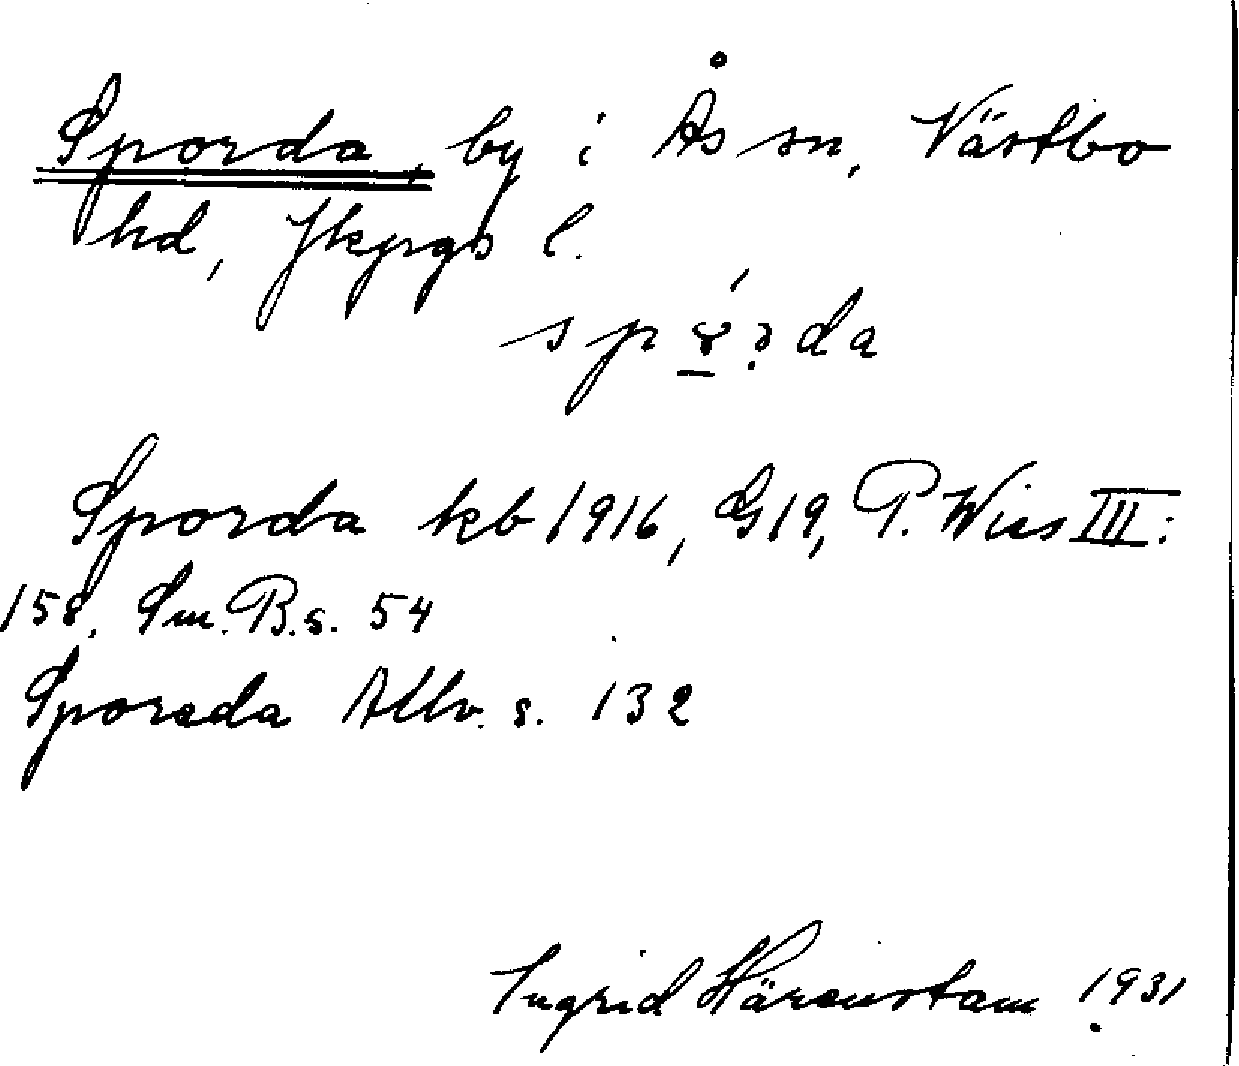 Sporda, by i Ås sn, Västbo
hd, Jkpgs l.
Sporda kb 1916, G19, P. Wies III:
158, Sm. B. s. 54
Sporeda Allv. s. 132
Ingrid Härenstam 1931